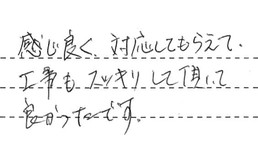 感じ良く、対応してもらえて、
工事もスッキリして頂いて
良かったです。